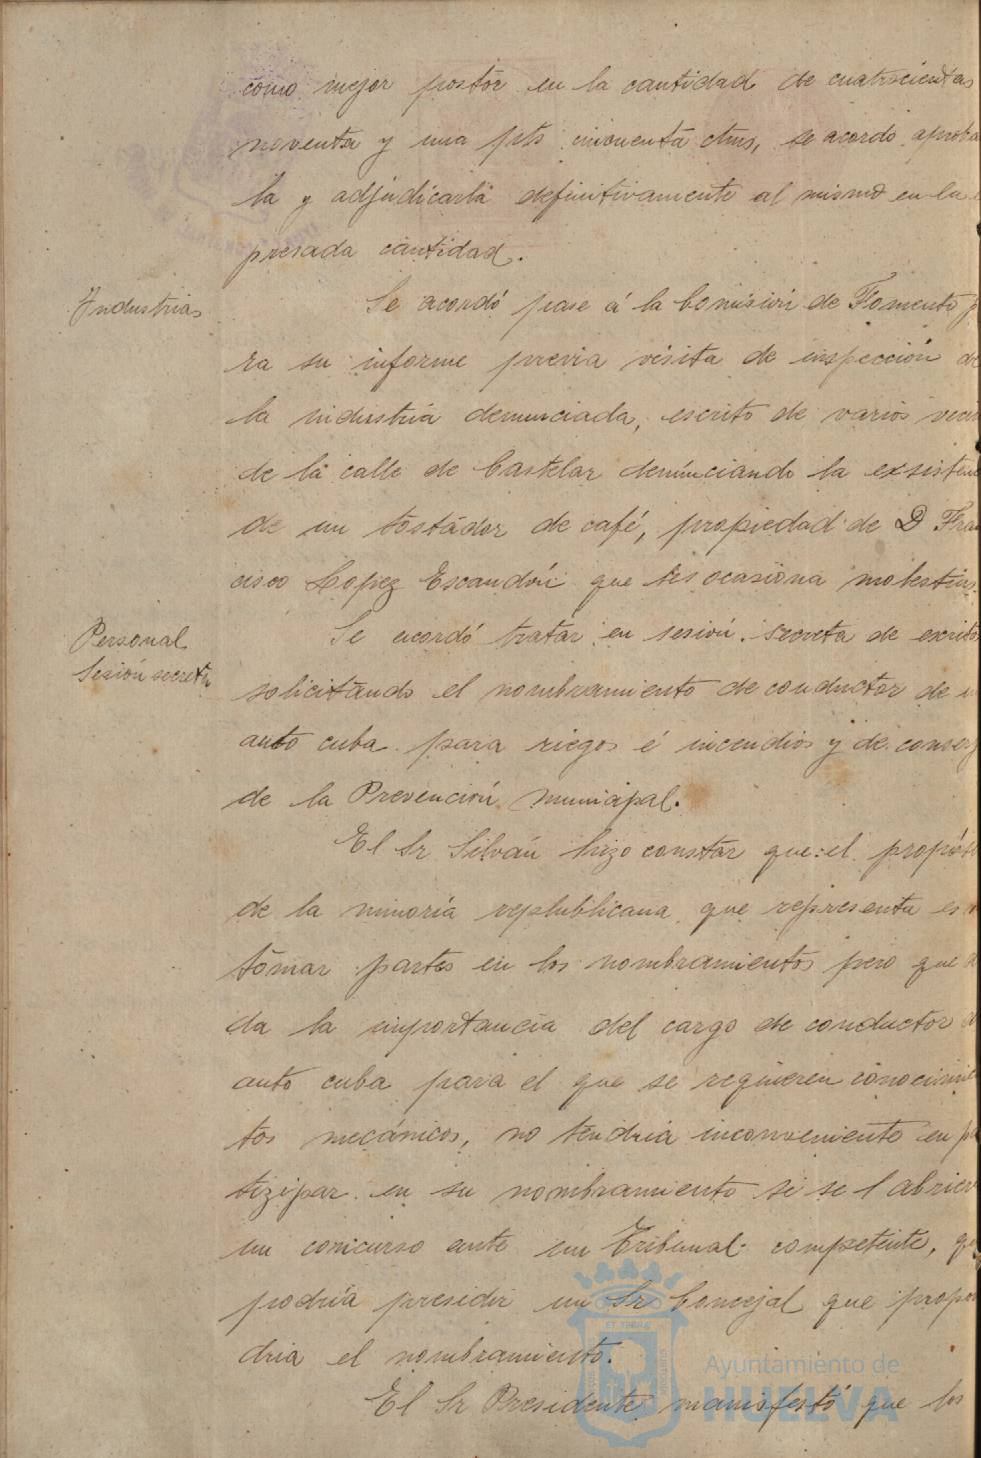 como mejor postor en la cantidad de cuatrocientas
noventa y una pts cincuenta ctms, se acordó aproba
la y adjudicarla definitivamente al mismo en la e
presada cantidad.
Industrias
Se acordó pase á la Comisión de Fomento p
ra su informe previa visita de inspección de
la industria denunciada, escrito de varios veci
de la calle de Castelar denunciando la existenc
de un tostador de café, propiedad de D Fran
cisco Lopez Escandón que les ocasiona molestias.
Personal
Sesión secreta
Se acordó tratar en sesión secreta de escritos
solicitando el nombramiento de conductor de u
auto cuba para riegos é incendios y de conserj
de la Prevención municipal.
El Sr Silván hizo constar que el propósi
de la minoría replublicana que representa es n
tomar partes en los nombramientos pero que d
da la importancia del cargo de conductor d
auto cuba para el que se requieren conocimie
tos mecánicos, no tendria inconveniente en pa
tizipar en su nombramiento si se l abrier
un concurso ante un Tribunal competente, que
podría presidir un Sr Concejal que propon
dria el nombramiento.
El Sr Presidente manifestó que los
ET TERRÆ
Ayuntamiento de
HUELVA